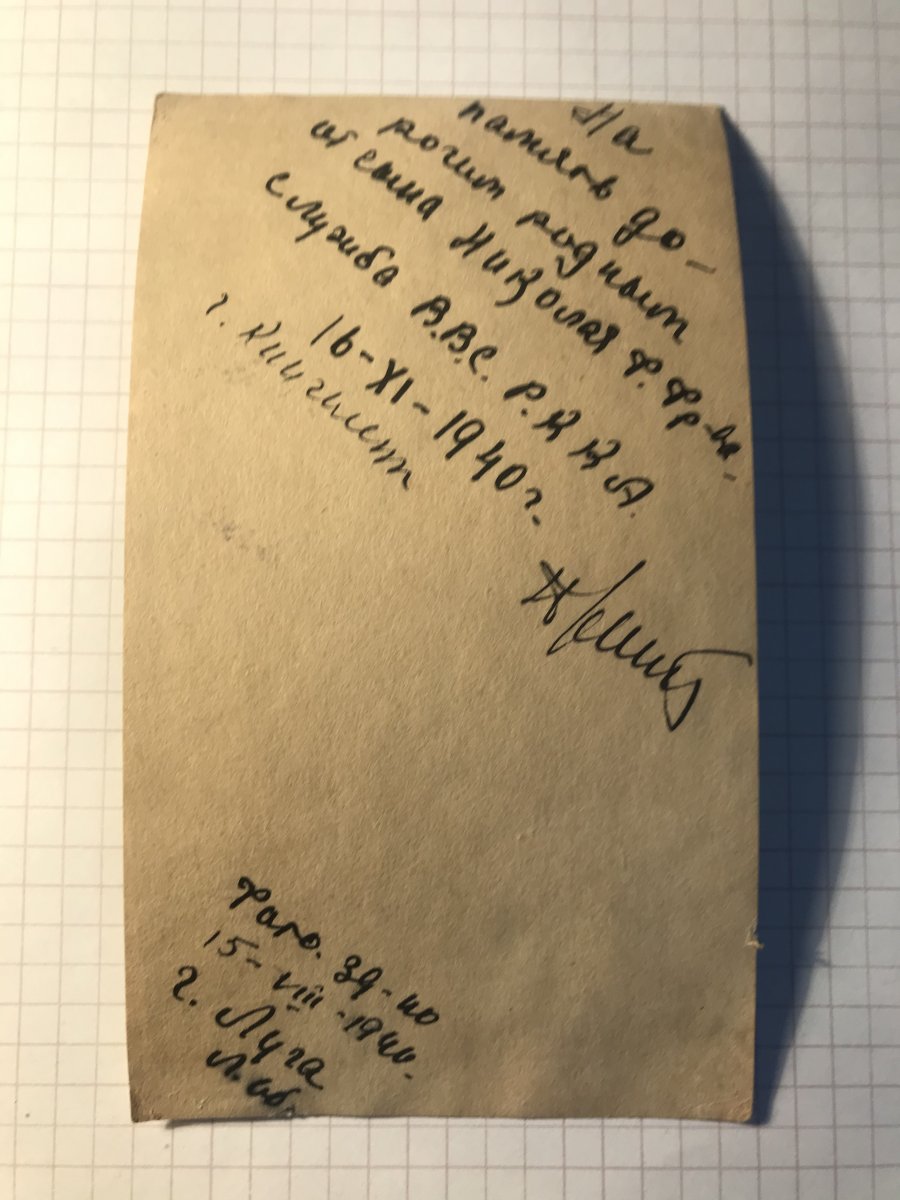 На
память до-
рогим родным
от сына Николая Ф. Фр-
служба В.В.С. Р.К.К.А.
16-XI-1940 г.
г. Кингисепп
Фато. зд-но
15-VIII-1940.
г. Луга
Л. об.